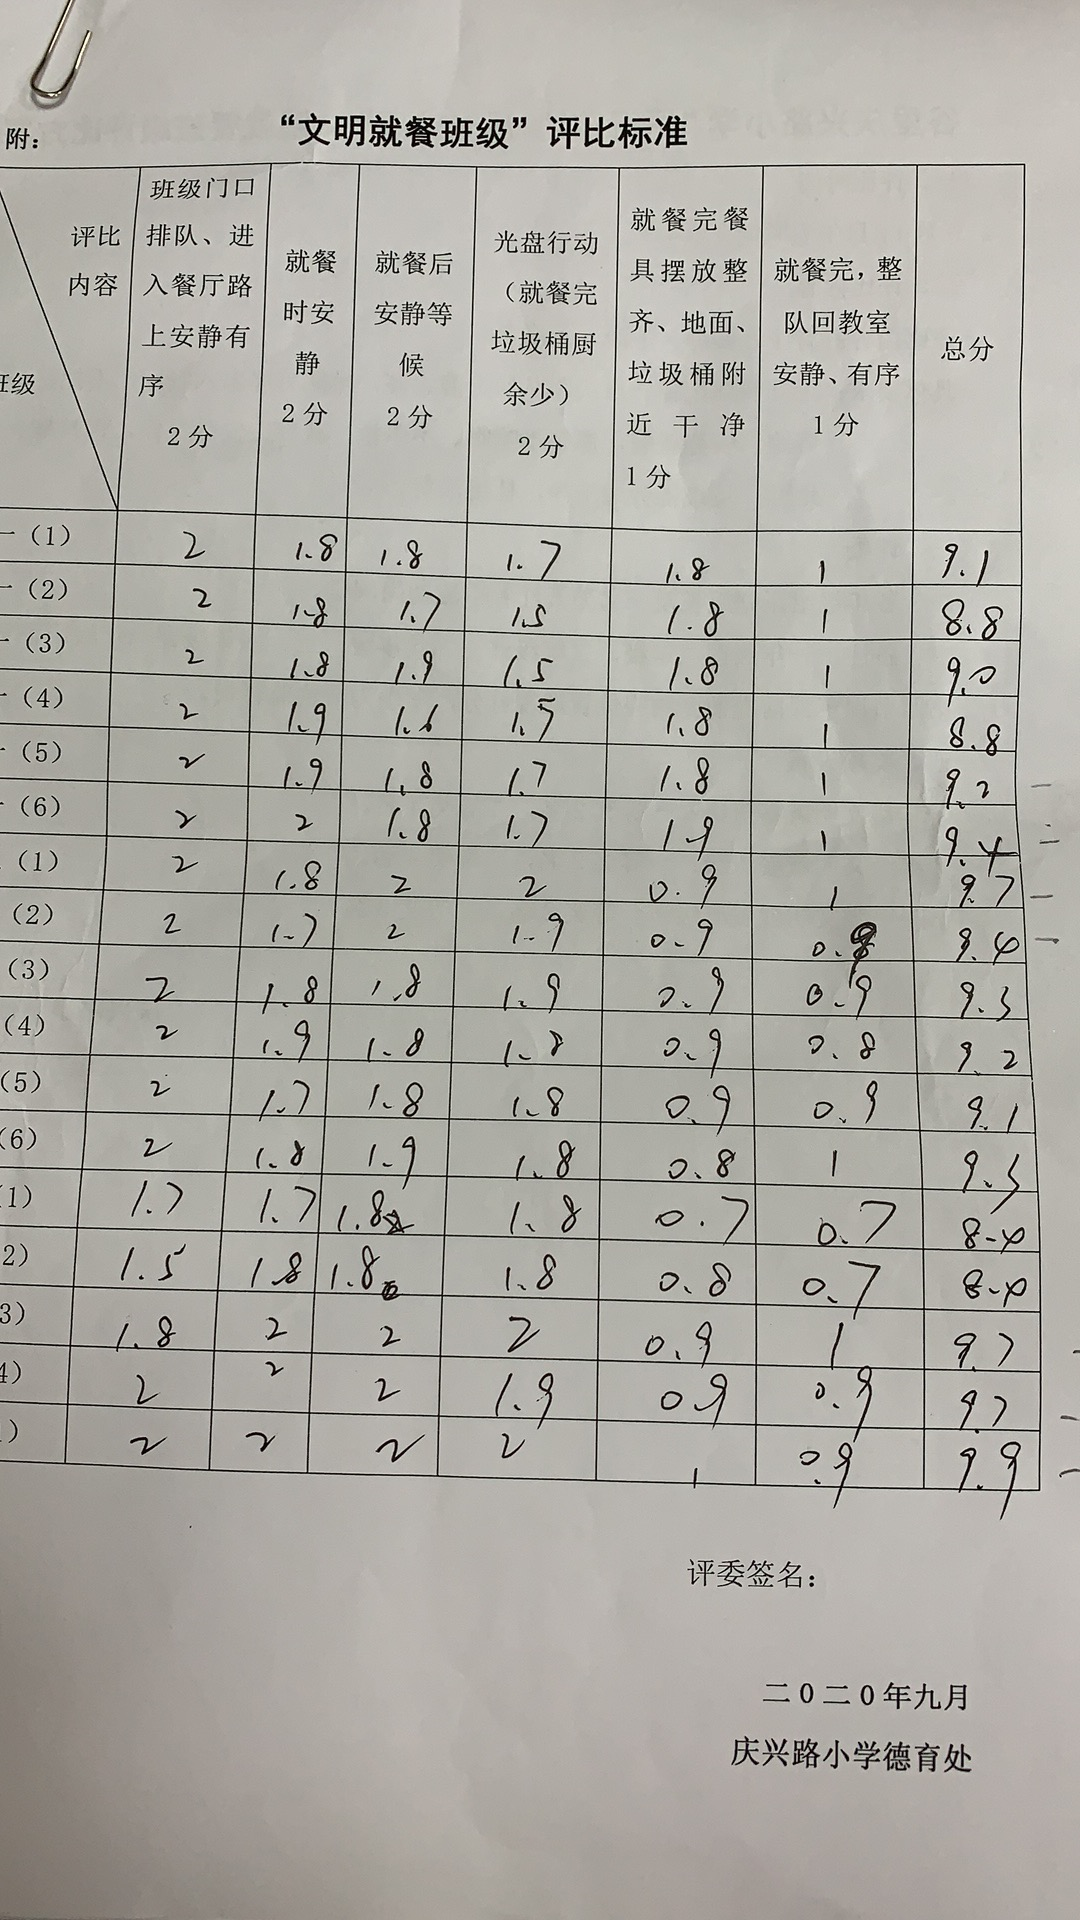 附：
“文明就餐班级”评比标准
评比
内容
班级
班级门口
排队、进
入餐厅路
上安静有
序
2分
就餐
时安
静
2分
就餐后
安静等
候
2分
光盘行动
（就餐完
垃圾桶厨
余少）
2分
就餐完餐
具摆放整
齐、地面、
垃圾桶附
近干净
1分
就餐完，整
队回教室
安静、有序
1分
总分
一（1） 2 1.8 1.8 1.7 1.8 1 9.1
一（2） 2 1.8 1.7 1.5 1.8 1 8.8
一（3） 2 1.8 1.9 1.5 1.8 1 9.0
（4） 2 1.9 1.6 1.5 1.8 1 8.8
（5） 2 1.9 1.8 1.7 1.8 1 9.2
（6） 2 2 1.8 1.7 1.9 1 9.4
（1） 2 1.8 2 2 0.9 1 9.7
（2） 2 1.7 2 1.9 0.9 0.9 9.4
（3） 2 1.8 1.8 1.9 0.9 0.9 9.3
（4） 2 1.9 1.8 1.8 0.9 0.8 9.2
（5） 2 1.7 1.8 1.8 0.9 0.9 9.1
（6） 2 1.8 1.9 1.8 0.8 1 9.3
1） 1.7 1.7 1.8 1.8 0.7 0.7 8.4
2） 1.5 1.8 1.8 1.8 0.8 0.7 8.4
3） 1.8 2 2 2 0.9 1 9.7
4） 2 2 2 1.9 0.9 0.9 9.7
） 2 2 2 2 1 0.9 9.9
评委签名：
二０二０年九月
庆兴路小学德育处